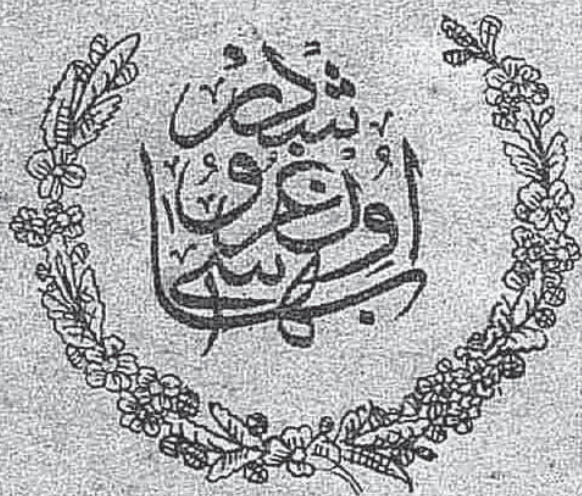 بهاسی اون غروشدر